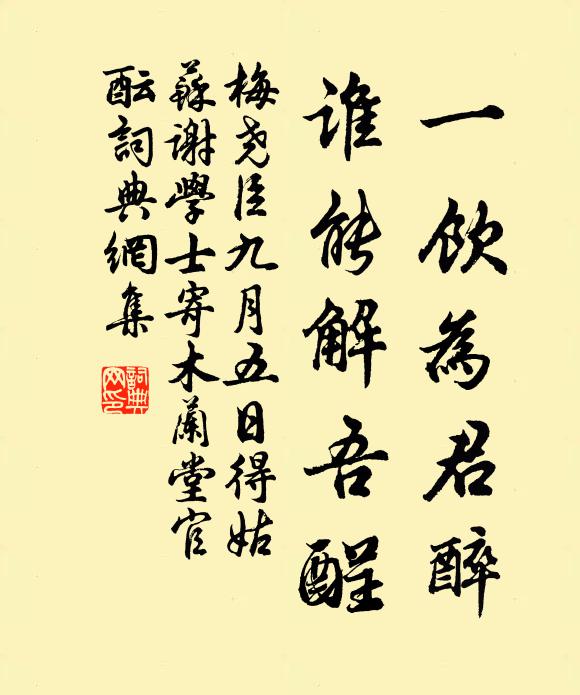 一飲為君醉
誰能解吾醒
梅堯臣九月五日得姑
蘇謝學士寄木蘭堂官
酝詞典網集
詞典
网印